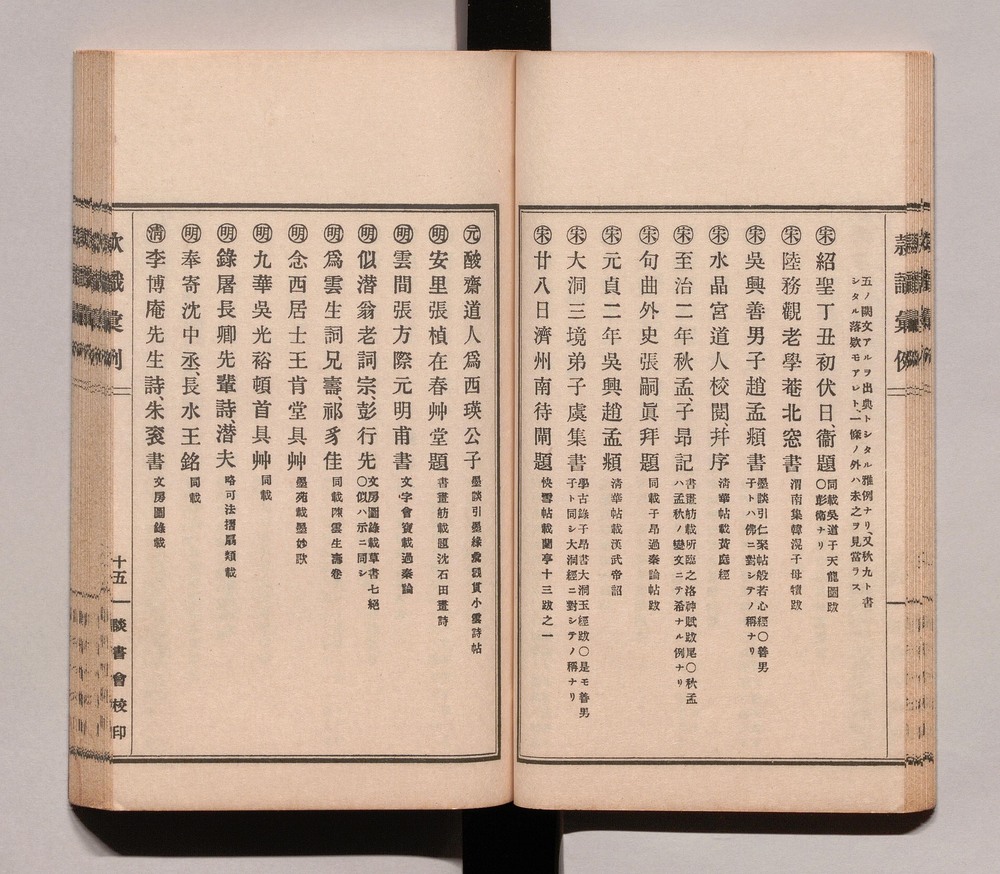 五ノ闕文アルヲ出典トシタル雅例ナリ、又秋九ト書
シタル落欵モアレト、一條ノ外ハ未之ヲ見當ラス
宋 紹聖丁丑初伏日、衞題 同載吳道子天龍圖跋
〇彭衞ナリ
宋 陸務觀老學菴北窓書 渭南集韓滉子母犢跋
宋 吳興善男子趙孟頫書 墨談引仁聚帖般若心經〇善男
子トハ佛ニ對シテノ稱ナリ
宋 水晶宮道人校閱、幷序 淸華帖載黃庭經
宋 至治二年秋孟、子昂記 書畫舫載所臨之洛神賦跋尾〇秋孟
ハ孟秋ノ變文ニテ希ナル例ナリ
宋 句曲外史張嗣眞拜題 同載子昂過秦論帖跋
宋 元貞二年吳興趙孟頫 淸華帖載漢武帝詔
宋 大洞三境弟子虞集書 學古錄子昂書大洞玉經跋〇是モ善男
子ト同シ大洞經ニ對シテノ稱ナリ
宋 廿八日濟州南待閘題 快雪帖載蘭亭十三跋之一
元 酸齋道人爲西瑛公子 墨談引墨緣彙觀貫小雲詩帖
明 安里張楨在春艸堂題 書畫舫載題沈石田畫詩
明 雲間張方際元明甫書 文字會寶載過秦論
明 似潛翁老詞宗、彭行先 文房圖錄載草書七絕
〇似ハ示ニ同シ
明 爲雲生詞兄壽、祁豸佳 同載陳雲生壽卷
明 念西居士王肯堂具艸 墨苑載墨妙歌
明 九華吳光裕頓首具艸 同載
明 錄屠長卿先輩詩、潛夫 略可法摺扇類載
明 奉寄沈中丞、長水王銘 同載
淸 李博庵先生詩、朱袞書 文房圖錄載
十五 談書會校印